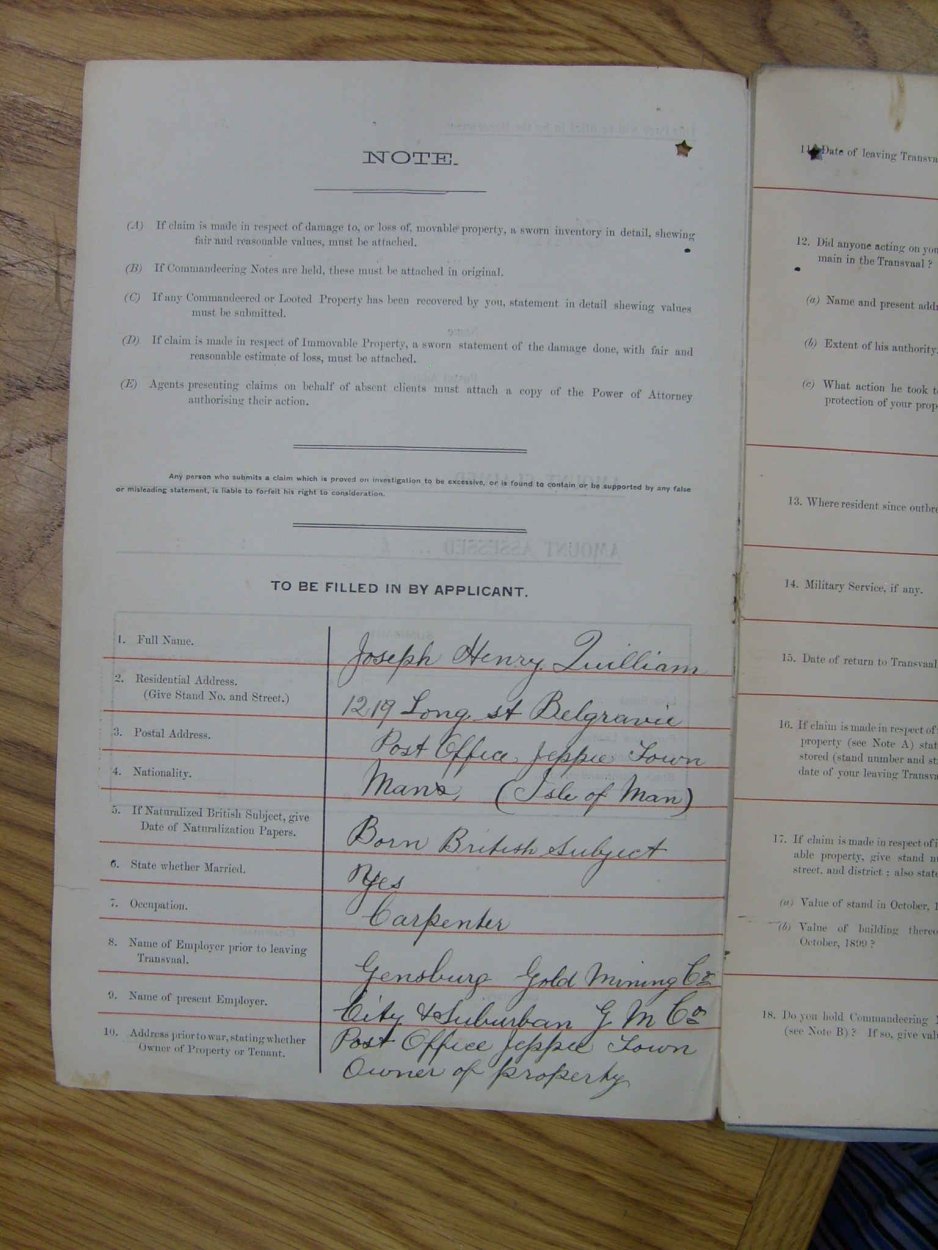 NOTE.
(A) If claim is made in respect of damage to, or loss of, movable property, a sworn inventory in detail, shewing
fair and reasonable values, must be attached.
(B) If Commandeering Notes are held, these must be attached in original.
(C) If any Commandeered or Looted Property has been recovered by you, statement in detail shewing values
must be submitted.
(D) If claim is made in respect of Immovable Property, a sworn statement of the damage done, with fair and
reasonable estimate of loss, must be attached.
(E) Agents presenting claims on behalf of absent clients must attach a copy of the Power of Attorney
authorising their action.
Any person who submits a claim which is proved on investigation to be excessive, or is found to contain or be supported by any false
or misleading statement, is liable to forfeit his right to consideration.
AMOUNT ASSESSED ... £
TO BE FILLED IN BY APPLICANT.
1. Full Name.
Joseph Henry Quilliam
2. Residential Address.
(Give Stand No. and Street.)
1219 Long st Belgravie
3. Postal Address.
Post Office Jeppie Town
4. Nationality.
Manx, (Isle of Man)
5. If Naturalized British Subject, give
Date of Naturalization Papers.
Born British Subject
6. State whether Married.
Yes
7. Occupation.
Carpenter
8. Name of Employer prior to leaving
Transvaal.
Gold Mining Co
9. Name of present Employer.
City & Suburban G M Co
10. Address prior to war, stating whether
Owner of Property or Tenant.
Post Office Jeppie Town
Owner of property
11. Date of leaving Transva
12. Did anyone acting on you
main in the Transvaal ?
(a) Name and present addr
(b) Extent of his authority.
(c) What action he took t
protection of your prop
13. Where resident since outbre
14. Military Service, if any.
15. Date of return to Transvaal
16. If claim is made in respect of
property (see Note A) stat
stored (stand number and st
date of your leaving Transva
17. If claim is made in respect of i
able property, give stand n
street, and district ; also state
(a) Value of stand in October, 1
(b) Value of building thereo
October, 1899 ?
18. Do you hold Commandeering
(see Note B) ? If so, give val